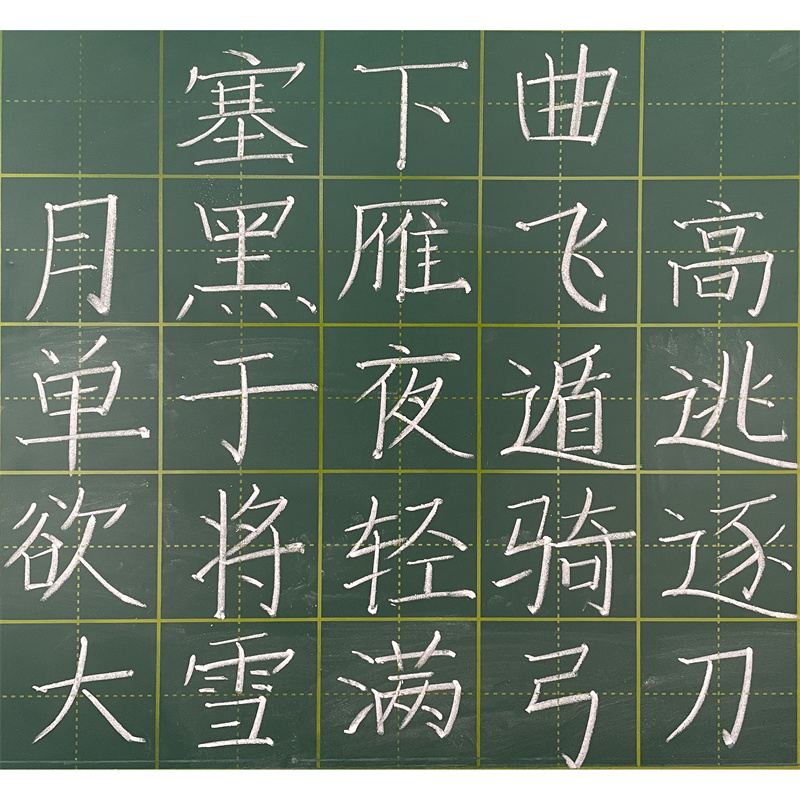 塞下曲
月黑雁飞高
单于夜遁逃
欲将轻骑逐
大雪满弓刀